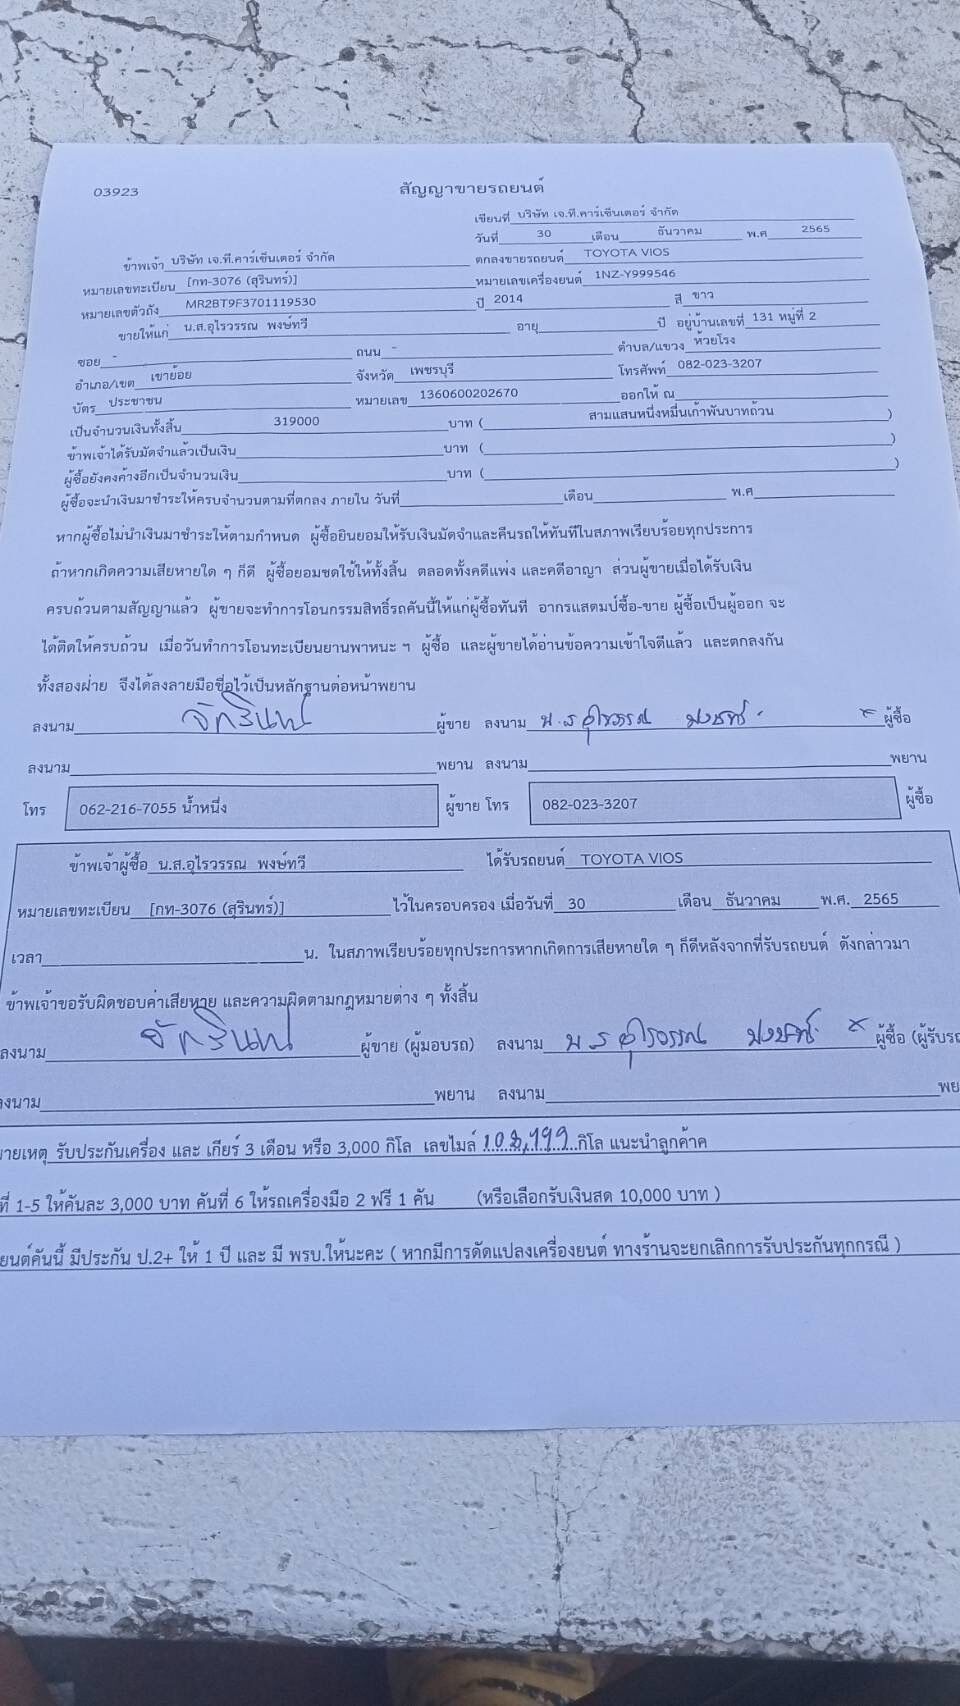 03923
สัญญาขายรถยนต์
เขียนที่ บริษัท เจ.ที.คาร์เซ็นเตอร์ จำกัด
วันที่ 30 เดือน ธันวาคม พ.ศ 2565
ข้าพเจ้า บริษัท เจ.ที.คาร์เซ็นเตอร์ จำกัด ตกลงขายรถยนต์ TOYOTA VIOS
หมายเลขทะเบียน [กท-3076 (สุรินทร์)] หมายเลขเครื่องยนต์ 1NZ-Y999546
หมายเลขตัวถัง MR2BT9F3701119530 ปี 2014 สี ขาว
ขายให้แก่ น.ส.อุไรวรรณ พงษ์ทวี อายุ ปี อยู่บ้านเลขที่ 131 หมู่ที่ 2
ซอย - ถนน - ตำบล/แขวง ห้วยโรง
อำเภอ/เขต เขาย้อย จังหวัด เพชรบุรี โทรศัพท์ 082-023-3207
บัตร ประชาชน หมายเลข 1360600202670 ออกให้ ณ
เป็นจำนวนเงินทั้งสิ้น 319000 บาท ( สามแสนหนึ่งหมื่นเก้าพันบาทถ้วน )
ข้าพเจ้าได้รับมัดจำแล้วเป็นเงิน บาท ( )
ผู้ซื้อยังคงค้างอีกเป็นจำนวนเงิน บาท ( )
ผู้ซื้อจะนำเงินมาชำระให้ครบจำนวนตามที่ตกลง ภายใน วันที่ เดือน พ.ศ
หากผู้ซื้อไม่นำเงินมาชำระให้ตามกำหนด ผู้ซื้อยินยอมให้รับเงินมัดจำและคืนรถให้ทันทีในสภาพเรียบร้อยทุกประการ
ถ้าหากเกิดความเสียหายใด ๆ ก็ดี ผู้ซื้อยอมชดใช้ให้ทั้งสิ้น ตลอดทั้งคดีแพ่ง และคดีอาญา ส่วนผู้ขายเมื่อได้รับเงิน
ครบถ้วนตามสัญญาแล้ว ผู้ขายจะทำการโอนกรรมสิทธิ์รถคันนี้ให้แก่ผู้ซื้อทันที อากรแสตมป์ซื้อ-ขาย ผู้ซื้อเป็นผู้ออก จะ
ได้ติดให้ครบถ้วน เมื่อวันทำการโอนทะเบียนยานพาหนะ ฯ ผู้ซื้อ และผู้ขายได้อ่านข้อความเข้าใจดีแล้ว และตกลงกัน
ทั้งสองฝ่าย จึงได้ลงลายมือชื่อไว้เป็นหลักฐานต่อหน้าพยาน
ลงนาม ผู้ขาย ลงนาม น.ส อุไรวรรณ พงษ์ทวี x ผู้ซื้อ
ลงนาม พยาน ลงนาม พยาน
โทร 062-216-7055 น้ำหนึ่ง ผู้ขาย โทร 082-023-3207 ผู้ซื้อ
ข้าพเจ้าผู้ซื้อ น.ส.อุไรวรรณ พงษ์ทวี ได้รับรถยนต์ TOYOTA VIOS
หมายเลขทะเบียน [กท-3076 (สุรินทร์)] ไว้ในครอบครอง เมื่อวันที่ 30 เดือน ธันวาคม พ.ศ. 2565
เวลา น. ในสภาพเรียบร้อยทุกประการหากเกิดการเสียหายใด ๆ ก็ดีหลังจากที่รับรถยนต์ ดังกล่าวมา
ข้าพเจ้าขอรับผิดชอบค่าเสียหาย และความผิดตามกฎหมายต่าง ๆ ทั้งสิ้น
ลงนาม ผู้ขาย (ผู้มอบรถ) ลงนาม น.ส อุไรวรรณ พงษ์ทวี x ผู้ซื้อ (ผู้รับรถ
ลงนาม พยาน ลงนาม พย
ายเหตุ รับประกันเครื่อง และ เกียร์ 3 เดือน หรือ 3,000 กิโล เลขไมล์ กิโล แนะนำลูกค้าค
ที่ 1-5 ให้คันละ 3,000 บาท คันที่ 6 ให้รถเครื่องมือ 2 ฟรี 1 คัน (หรือเลือกรับเงินสด 10,000 บาท )
ยนต์คันนี้ มีประกัน ป.2+ ให้ 1 ปี และ มี พรบ.ให้นะคะ ( หากมีการดัดแปลงเครื่องยนต์ ทางร้านจะยกเลิกการรับประกันทุกกรณี )